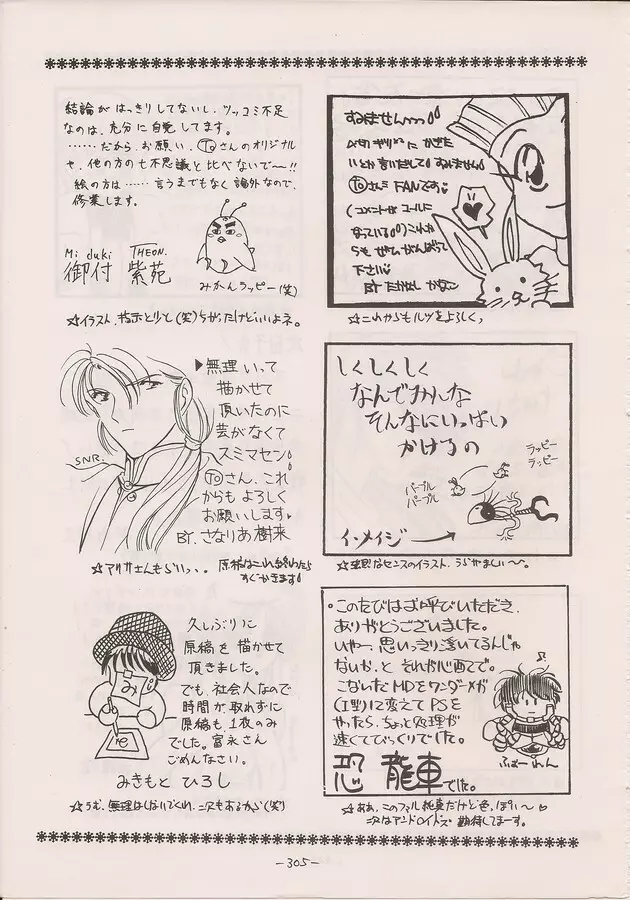 結論がはっきりしてないし、ツッコミ不足
なのは、充分に自覚してます。
……だから、お願い、Toさんのオリジナル
や、他の方の七不思議と比べないで〜!!
絵の方は……言うまでもなく論外なので、
修業します。
Mi duki THEON.
御付 紫苑
みかんラッピー(笑)
☆イラスト、
すみませんっっ
いとか言いだして すみません
Toさんの FANです
(コメントが エールに
なっている これか
らも ぜひがんばって
下さい
BY たかなし かなこ
☆これからもルツをよろしく、
▶無理いって
描かせて
頂いたのに
芸がなくて
スミマセン
Toさん、これ
からもよろしく
お願いします
BY.さなりあ樹来
SNR.
☆アリサさんもらいっ、、原稿はこれ終わったら
すぐかきます
しくしくしく
なんでみんな
そんなにいっぱい
かけるの
ラッピー
ラッピー
パープル
パープル
イメージ→
なセンスのイラスト、うらやましい〜。
久しぶりに
原稿を描かせて
頂きました。
でも、社会人なので
時間が取れずに
原稿も1枚のみ
でした。富永さん
ごめんなさい。
みきもと ひろし
☆うむ、無理はしないでくれ、二次もあるから(笑)
・このたびはお呼びいただき、
ありがとうございました。
いやー、思いっきり浮いてるんじゃ
ないか、と それが心配で。
こないだMDをワンダーメガ
(I型)に変えてPSを
やったら、ちょっと処理が
速くてびっくりでした。
恐龍車でした。
ふぁーれん
☆ああ、このファル
次はアンドロイドズ 期待してまーす。
-305-